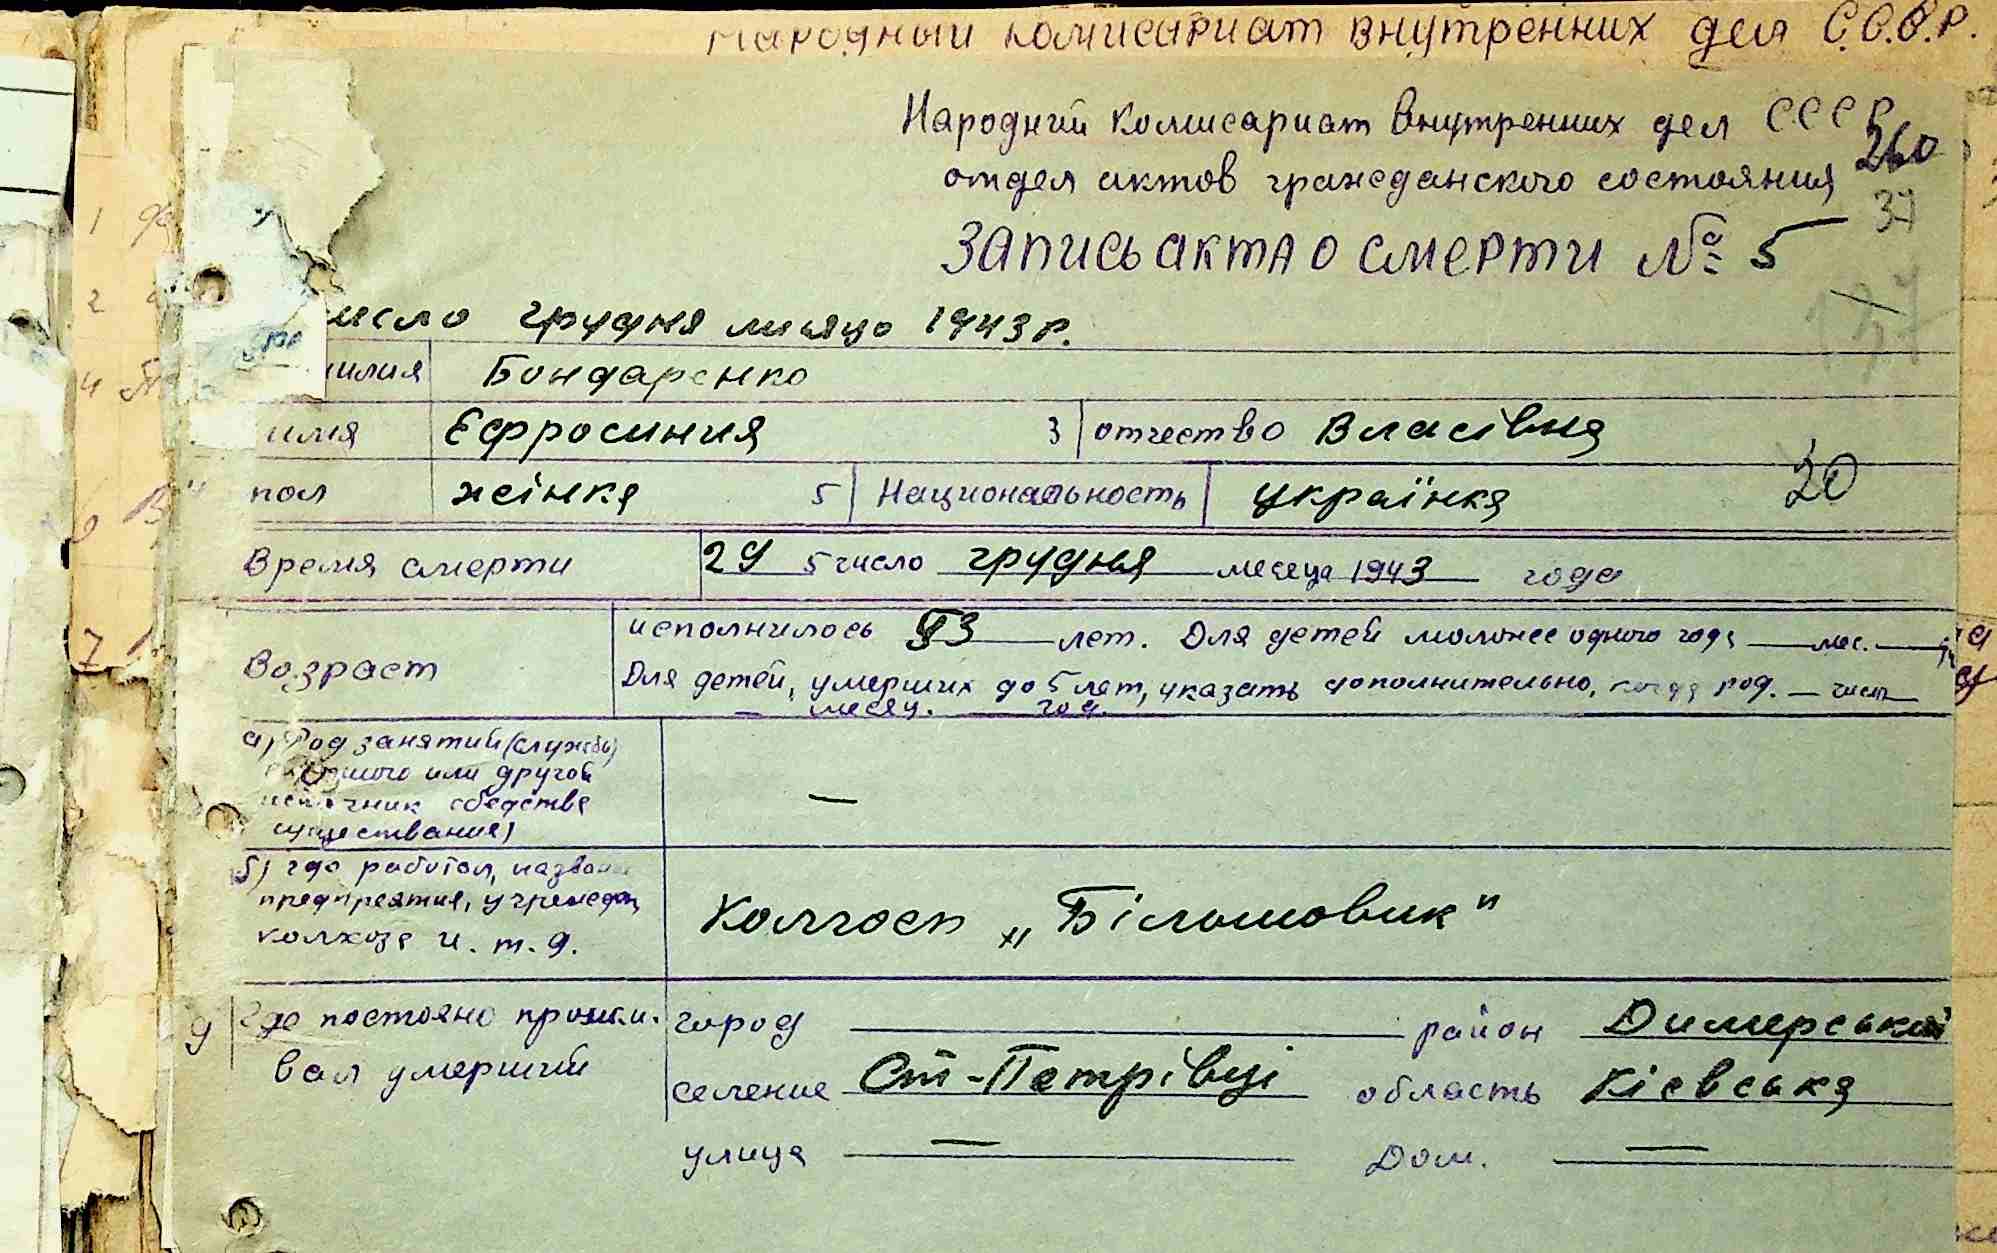 Народный комисариат внутренних дел С.С.С.Р.
Народний комисариат внутренних дел СССР
260
отдел актов гражданского состояния
37
Запись акта о смерти № 5
число грудня місяця 1943 р.
милия Бондаренко
имя Єфросиния 3 отчество Власівна
пол жінка 5 Национальность українка 20
Время смерти 29 5 число грудня месеца 1943 года
Возраст исполнилось 53 лет. Для детей моложее одного года — мес. —
Для детей, умерших до 5 лет, указать дополнительно, когда род. — число
— месяц. — год.
а) Род занятий (службы)
или другой
источник средства
существания)
—
б) где работал, назван
предприятия, учрежден,
колхоза и. т. д.
Колгосп „Більшовик"
9 Где постояно прожи- город район Димерський
вал умерший селение Ст-Петрівці область Кієвська
улица — Дом. —